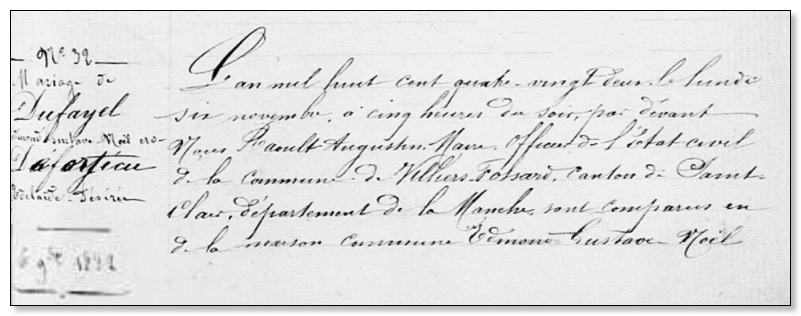 Nº 32
Mariage de
Dufayel
Edmond Gustave Noël et
Laforticu
Adelaïde Désirée
6 9bre 1882
L'an mil huit cent quatre-vingt deux le lundi
six novembre, à cinq heures du soir, par devant
Nous Raoult Augustin Maire Officier de l'état civil
de la commune de Villiers-Fossard, canton de Saint-
Clair, département de la Manche, sont comparus en
de la maison commune Edmond Gustave Noël